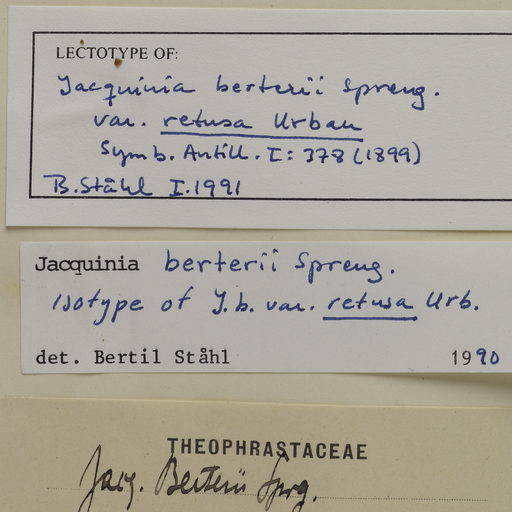 LECTOTYPE OF:
Jacquinia berterii Spreng.
var. retusa Urban
Symb. Antill. I: 378 (1899)
B. Ståhl I.1991
Jacquinia berterii Spreng.
Isotype of J. b. var. retusa Urb.
det. Bertil Ståhl 1990
THEOPHRASTACEAE
Jacq. Berterii Sprg.